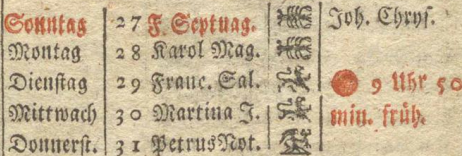 Sonntag 27 F. Septuag. Joh. Chrys.
Montag 28 Karol Mag.
Dienstag 29 Franc. Sal. 9 Uhr 50
Mittwoch 30 Martina J. min. früh.
Donnerst. 31 Petrus Not.